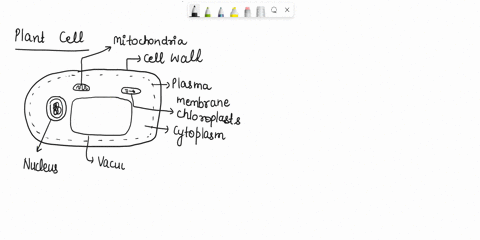 Plant Cell
Mitochondria
Cell Wall
Plasma
membrane
Chloroplasts
Cytoplasm
Nucleus
Vacu